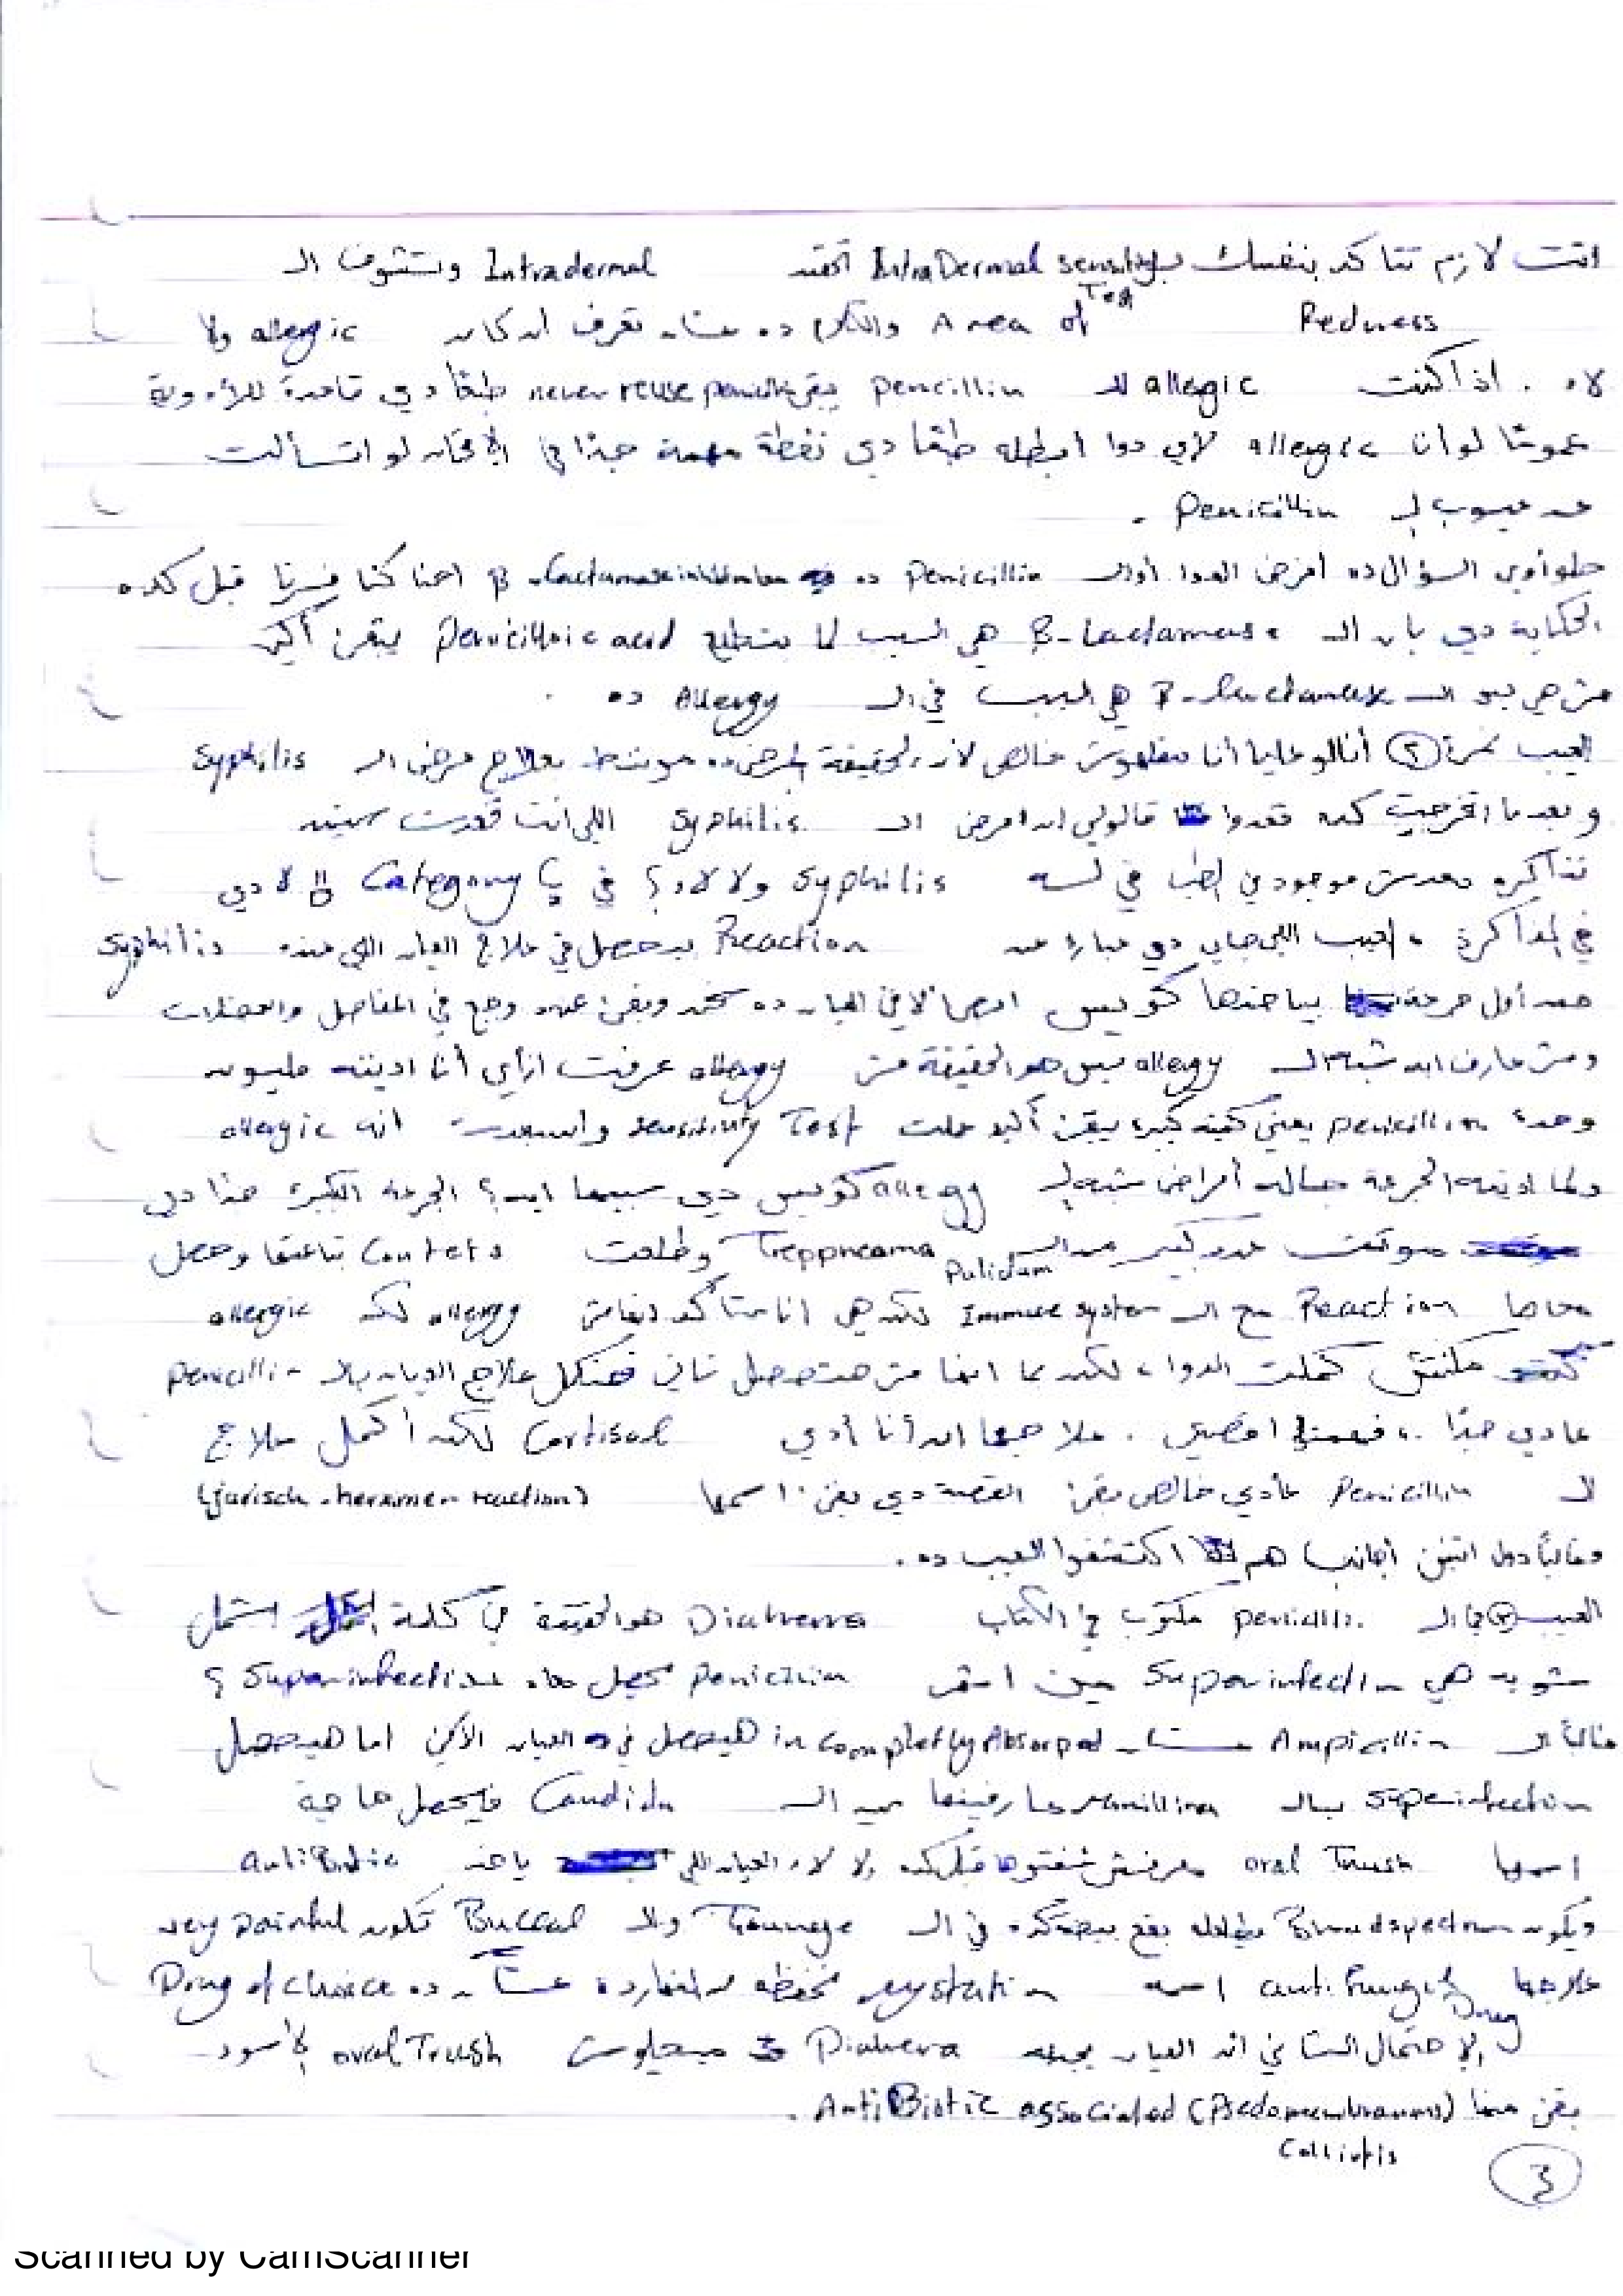 انت لازم تتأكد بنفسك بـ IntraDermal sensitivity Test تحقنه Intradermal وتشوف الـ
Area of Redness والكلام ده عشان تعرف ان كان allergic ولا
لاه . اذا كنت allergic للـ pencillin يبقى never reuse penicillin طبعًا دي قاعدة للأدوية
عمومًا لو أنا allergic لأي دوا ابطله طبعًا دي نقطة مهمة جدًا في الامتحان لو اتسألت
عن عيوب الـ Penicillin .
حلو أوي السؤال ده افرض الدوا أو الـ Penicillin ده احنا كنا فسرنا قبل كده
الحكاية دي بان الـ B-Lactamase هي السبب لما بتطلع Penicilloic acid يبقى أكيد
مش هي دي الـ B-Lactamase هي السبب في الـ Allergy ده .
العيب نمرة (٢) أنا لو عليا أنا خالص لان الحقيقة المرض ده بعلاج مرض الـ Syphilis
وبعد ما اتخرجت كده قعدوا قالولي ان مرض الـ Syphilis اللي انت قعدت سنين
تذاكره معدش موجود في الطب في لسه Syphilis ولا لاه ؟ في Category دي
في المذاكرة ، العيب اللي جاي دي عبارة عن Reaction بيحصل في علاج العيان اللي عنده Syphilis
عند أول جرعة بياخدها كويس الاقي العيان ده سخن ويبقى عنده وجع في المفاصل والعضلات
ومش عارف ايه شبه الـ allergy بس هو الحقيقة مش allergy عرفت ازاي أنا اديته مليون
وحدة penicillin يعني كمية كبيرة يبقى أكيد عملت sensitivity Test واستبعدت انه allergic
ولما اديته الجرعة جاله أمراض شبه الـ allergy كويس دي سببها ايه ؟ الجرعة الكبيرة هنا دي
موتت عدد كبير من الـ Treppneama Palidum وطلعت Contets بتاعتها وحصل
معاها Reaction مع الـ Immune system لكن هي انا متأكد انها مش allergy لكن allergic
مكنتش كملت الدوا ، لكن بما انها مش هتحصل تاني فهنكمل علاج العيان بالـ Penicillin
عادي جدًا . علاجها ان أنا أدي Cortisol لكن أكمل علاج
الـ Penicillin عادي خالص يبقى القصة دي يبقى اسمها (jarisch-herximer reaction)
وغالبًا دول اتنين أجانب هم اكتشفوا العيب ده .
العيب (٣) في الـ penicillin مكتوب في الكتاب Diahrerra هو الحقيقة في كلمة اشمل
شوية هي Superinfection مين امتى penicillin يحصل معاه Superinfection ؟
غالبًا الـ Ampicillin عشان incompletly Absorped هيحصل في العيان الآتي اما هيحصل
superinfection بالـ عارفينها من الـ Candida فيحصل حاجة
اسمها oral Trush معرفش شفتوها قبل كده ولا لاه العيان اللي ياخد antiBiotic
ويكون Broadspectrum يطلعله بقع بيضة كده في الـ Tounge والـ Buccal تكون very painful
علاجها antifungal Drug اسمه nystatin تحفظه عشان ده Drug of choice
الاحتمال التاني ان العيان يجيله Diahrera مبيجلوش oral Trush لأسود
يبقى هنا AntiBiotic associated (Psedomembranous) .
Collivtis
3
Scanned by CamScanner